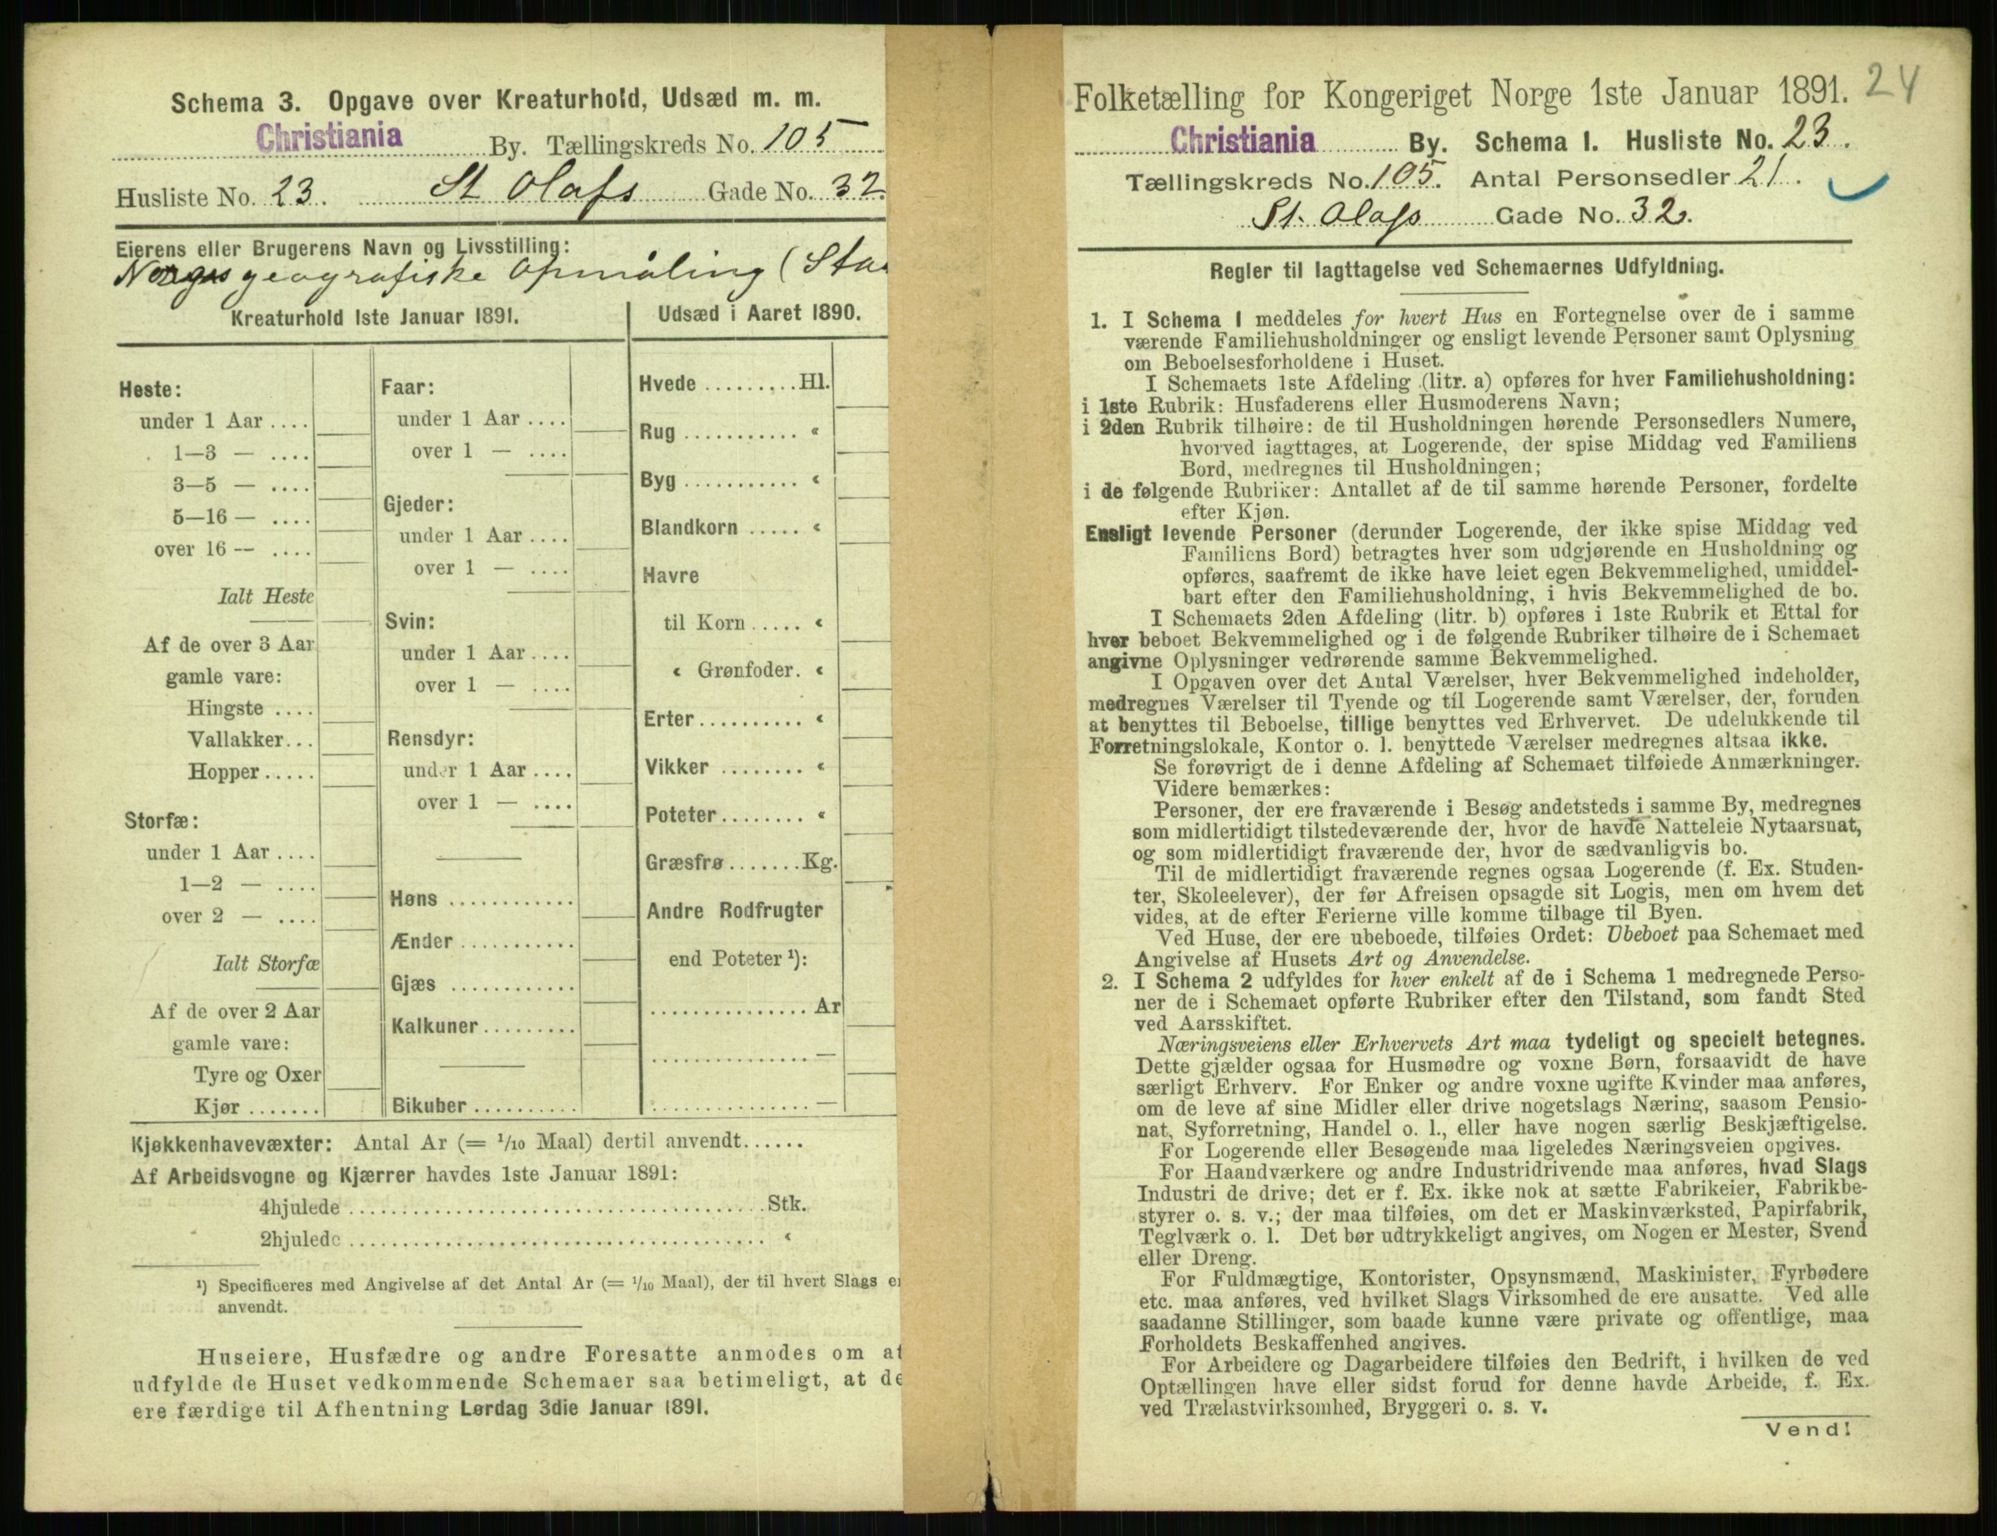 Schema 3. Opgave over Kreaturhold, Udsæd m. m.
Christiania By. Tællingskreds No. 105
Husliste No. 23. St Olafs Gade No. 32.
Eierens eller Brugerens Navn og Livsstilling:
Norges geografiske Opmåling (Sta
Kreaturhold 1ste Januar 1891.
Heste:
under 1 Aar ....
1—3 — ....
3—5 — ....
5—16 — ....
over 16 — ....
Ialt Heste
Af de over 3 Aar
gamle vare:
Hingste ....
Vallakker...
Hopper .....
Storfæ:
under 1 Aar ....
1—2 — ....
over 2 — ....
Ialt Storfæ
Af de over 2 Aar
gamle vare:
Tyre og Oxer
Kjør .......
Faar:
under 1 Aar ....
over 1 — ....
Gjeder:
under 1 Aar ....
over 1 — ....
Svin:
under 1 Aar ....
over 1 — ....
Rensdyr:
under 1 Aar ....
over 1 — ....
Høns ............
Ænder ...........
Gjæs ............
Kalkuner.........
Bikuber ..........
Udsæd i Aaret 1890.
Hvede ......... Hl.
Rug ........... «
Byg ........... «
Blandkorn ..... «
Havre
til Korn ..... «
« Grønfoder. «
Erter.......... «
Vikker ........ «
Poteter........ «
Græsfrø .......Kg.
Andre Rodfrugter
end Poteter ¹):
............... Ar
............... —
............... —
Kjøkkenhavevæxter: Antal Ar (= 1/10 Maal) dertil anvendt......
Af Arbeidsvogne og Kjærrer havdes 1ste Januar 1891:
4hjulede ........................................Stk.
2hjulede ........................................ «
¹) Specificeres med Angivelse af det Antal Ar (= 1/10 Maal), der til hvert Slags e
anvendt.
Huseiere, Husfædre og andre Foresatte anmodes om at
udfylde de Huset vedkommende Schemaer saa betimeligt, at de
ere færdige til Afhentning Lørdag 3die Januar 1891.
Folketælling for Kongeriget Norge 1ste Januar 1891. 24
Christiania By. Schema I. Husliste No. 23.
Tællingskreds No. 105. Antal Personsedler 21.
St. Olafs Gade No. 32.
Regler til Iagttagelse ved Schemaernes Udfyldning.
1. I Schema I meddeles for hvert Hus en Fortegnelse over de i samme
værende Familiehusholdninger og ensligt levende Personer samt Oplysning
om Beboelsesforholdene i Huset.
I Schemaets 1ste Afdeling (litr. a) opføres for hver Familiehusholdning:
i 1ste Rubrik: Husfaderens eller Husmoderens Navn;
i 2den Rubrik tilhøire: de til Husholdningen hørende Personsedlers Numere,
hvorved iagttages, at Logerende, der spise Middag ved Familiens
Bord, medregnes til Husholdningen;
i de følgende Rubriker: Antallet af de til samme hørende Personer, fordelte
efter Kjøn.
Ensligt levende Personer (derunder Logerende, der ikke spise Middag ved
Familiens Bord) betragtes hver som udgjørende en Husholdning og
opføres, saafremt de ikke have leiet egen Bekvemmelighed, umiddel-
bart efter den Familiehusholdning, i hvis Bekvemmelighed de bo.
I Schemaets 2den Afdeling (litr. b) opføres i 1ste Rubrik et Ettal for
hver beboet Bekvemmelighed og i de følgende Rubriker tilhøire de i Schemaet
angivne Oplysninger vedrørende samme Bekvemmelighed.
I Opgaven over det Antal Værelser, hver Bekvemmelighed indeholder,
medregnes Værelser til Tyende og til Logerende samt Værelser, der, foruden
at benyttes til Beboelse, tillige benyttes ved Erhvervet. De udelukkende til
Forretningslokale, Kontor o. l. benyttede Værelser medregnes altsaa ikke.
Se forøvrigt de i denne Afdeling af Schemaet tilføiede Anmærkninger.
Videre bemærkes:
Personer, der ere fraværende i Besøg andetsteds i samme By, medregnes
som midlertidigt tilstedeværende der, hvor de havde Natteleie Nytaarsnat,
og som midlertidigt fraværende der, hvor de sædvanligvis bo.
Til de midlertidigt fraværende regnes ogsaa Logerende (f. Ex. Studen-
ter, Skoleelever), der før Afreisen opsagde sit Logis, men om hvem det
vides, at de efter Ferierne ville komme tilbage til Byen.
Ved Huse, der ere ubeboede, tilføies Ordet: Ubeboet paa Schemaet med
Angivelse af Husets Art og Anvendelse.
2. I Schema 2 udfyldes for hver enkelt af de i Schema 1 medregnede Perso-
ner de i Schemaet opførte Rubriker efter den Tilstand, som fandt Sted
ved Aarsskiftet.
Næringsveiens eller Erhvervets Art maa tydeligt og specielt betegnes.
Dette gjælder ogsaa for Husmødre og voxne Børn, forsaavidt de have
særligt Erhverv. For Enker og andre voxne ugifte Kvinder maa anføres,
om de leve af sine Midler eller drive nogetslags Næring, saasom Pensio-
nat, Syforretning, Handel o. l., eller have nogen særlig Beskjæftigelse.
For Logerende eller Besøgende maa ligeledes Næringsveien opgives.
For Haandværkere og andre Industridrivende maa anføres, hvad Slags
Industri de drive; det er f. Ex. ikke nok at sætte Fabrikeier, Fabrikbe-
styrer o. s. v.; der maa tilføies, om det er Maskinværksted, Papirfabrik,
Teglværk o. l. Det bør udtrykkeligt angives, om Nogen er Mester, Svend
eller Dreng.
For Fuldmægtige, Kontorister, Opsynsmænd, Maskinister, Fyrbødere
etc. maa anføres, ved hvilket Slags Virksomhed de ere ansatte. Ved alle
saadanne Stillinger, som baade kunne være private og offentlige, maa
Forholdets Beskaffenhed angives.
For Arbeidere og Dagarbeidere tilføies den Bedrift, i hvilken de ved
Optællingen have eller sidst forud for denne havde Arbeide, f. Ex.
ved Trælastvirksomhed, Bryggeri o. s. v.
Vend!